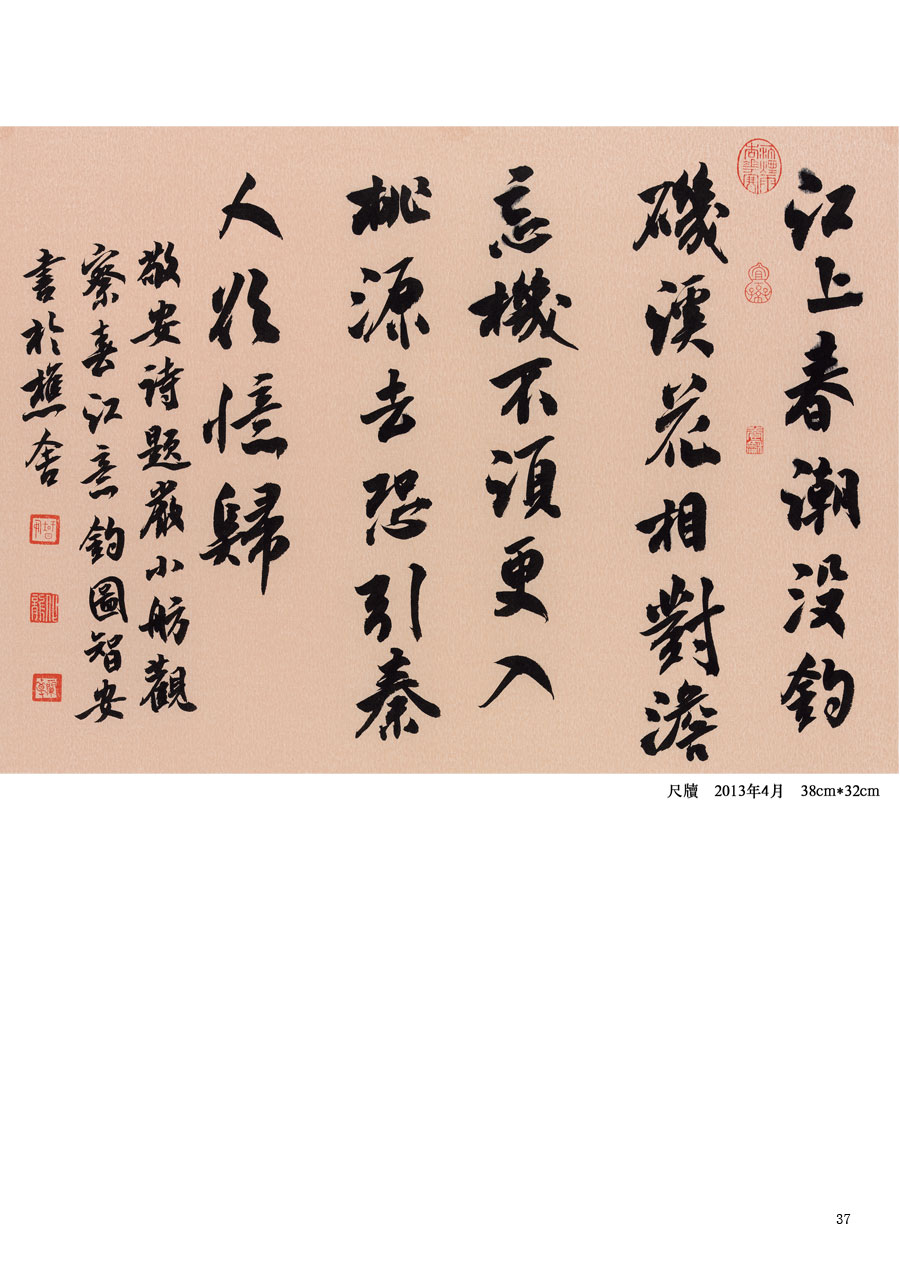 江上春潮没釣
磯溪花相對澹
忘機不須更入
桃源去恐引秦
人欲憶歸
敬安詩題嚴小舫觀
察春江意釣圖智安
書於樵舍
尺牘　2013年4月　38cm*32cm
37